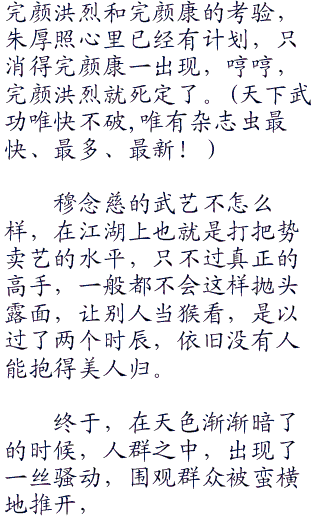 完颜洪烈和完颜康的考验，
朱厚照心里已经有计划，只
消得完颜康一出现，哼哼，
完颜洪烈就死定了。(天下武
功唯快不破,唯有杂志虫最
快、最多、最新！)
穆念慈的武艺不怎么
样，在江湖上也就是打把势
卖艺的水平，只不过真正的
高手，一般都不会这样抛头
露面，让别人当猴看，是以
过了两个时辰，依旧没有人
能抱得美人归。
终于，在天色渐渐暗了
的时候，人群之中，出现了
一丝骚动，围观群众被蛮横
地推开，